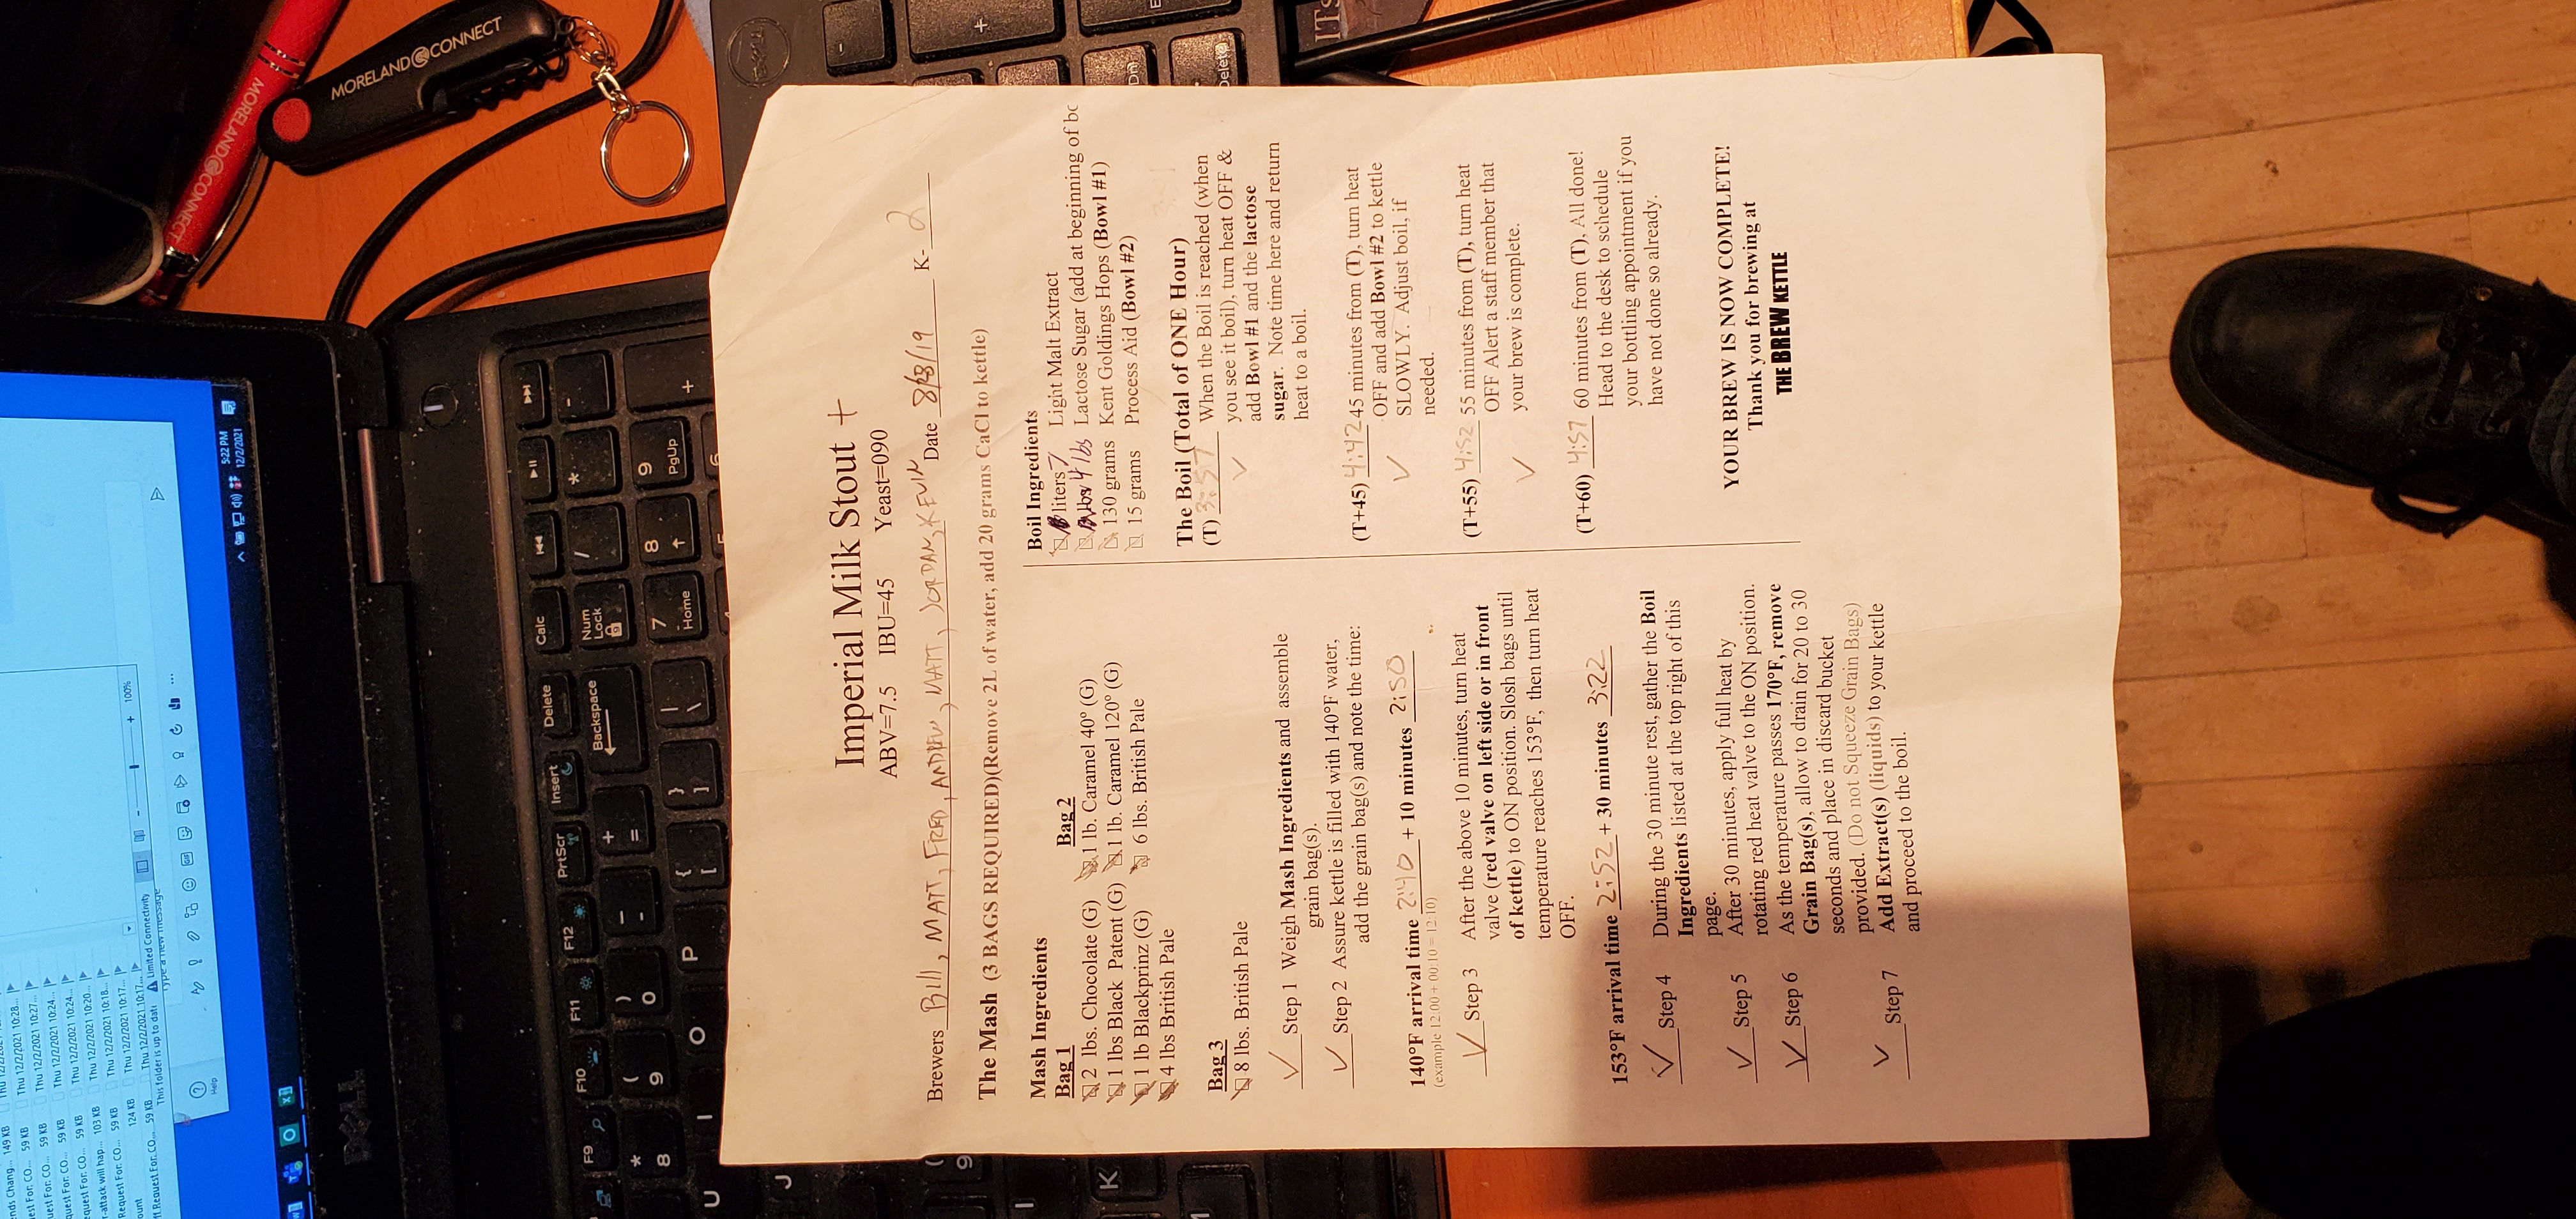 Imperial Milk Stout +
ABV=7.5 IBU=45 Yeast=090
Brewers Bill, MATT, FRED, ANDREW, MATT, JORDAN, KEVIN Date 8/28/19 K- 2
The Mash (3 BAGS REQUIRED)(Remove 2L of water, add 20 grams CaCl to kettle)
Mash Ingredients
Bag 1
2 lbs. Chocolate (G)
1 lbs Black Patent (G)
1 lb Blackprinz (G)
4 lbs British Pale
Bag 2
1 lb. Caramel 40° (G)
1 lb. Caramel 120° (G)
6 lbs. British Pale
Bag 3
8 lbs. British Pale
Step 1 Weigh Mash Ingredients and assemble
grain bag(s).
Step 2 Assure kettle is filled with 140°F water,
add the grain bag(s) and note the time:
140°F arrival time 2:40 + 10 minutes 2:50
(example 12:00 + 00:10 = 12:10)
Step 3 After the above 10 minutes, turn heat
valve (red valve on left side or in front
of kettle) to ON position. Slosh bags until
temperature reaches 153°F, then turn heat
OFF.
153°F arrival time 2:52 + 30 minutes 3:22
Step 4 During the 30 minute rest, gather the Boil
Ingredients listed at the top right of this
page.
Step 5 After 30 minutes, apply full heat by
rotating red heat valve to the ON position.
Step 6 As the temperature passes 170°F, remove
Grain Bag(s), allow to drain for 20 to 30
seconds and place in discard bucket
provided. (Do not Squeeze Grain Bags)
Step 7 Add Extract(s) (liquids) to your kettle
and proceed to the boil.
Boil Ingredients
liters 7 Light Malt Extract
lbs 4 lbs Lactose Sugar (add at beginning of bo
130 grams Kent Goldings Hops (Bowl #1)
15 grams Process Aid (Bowl #2)
The Boil (Total of ONE Hour)
3:51
(T) 3:57 When the Boil is reached (when
you see it boil), turn heat OFF &
add Bowl #1 and the lactose
sugar. Note time here and return
heat to a boil.
(T+45) 4:42 45 minutes from (T), turn heat
OFF and add Bowl #2 to kettle
SLOWLY. Adjust boil, if
needed.
(T+55) 4:52 55 minutes from (T), turn heat
OFF Alert a staff member that
your brew is complete.
(T+60) 4:57 60 minutes from (T), All done!
Head to the desk to schedule
your bottling appointment if you
have not done so already.
YOUR BREW IS NOW COMPLETE!
Thank you for brewing at
THE BREW KETTLE
MORELAND CONNECT
MORELAND CONNECT
DELL
5:22 PM
12/2/2021
Type a new message
This folder is up to date. Limited Connectivity
100%
Help
Thu 12/2/2021 10:28...
Thu 12/2/2021 10:27...
Thu 12/2/2021 10:24...
Thu 12/2/2021 10:24...
Thu 12/2/2021 10:20...
Thu 12/2/2021 10:18...
Thu 12/2/2021 10:17...
Thu 12/2/2021 10:17...
149 KB
59 KB
59 KB
59 KB
59 KB
103 KB
59 KB
124 KB
59 KB
F9 F10 F11 F12 PrtScr Insert Delete Calc
Backspace
Num Lock
7 Home
8
9 PgUp
U I O P
J K
Delete